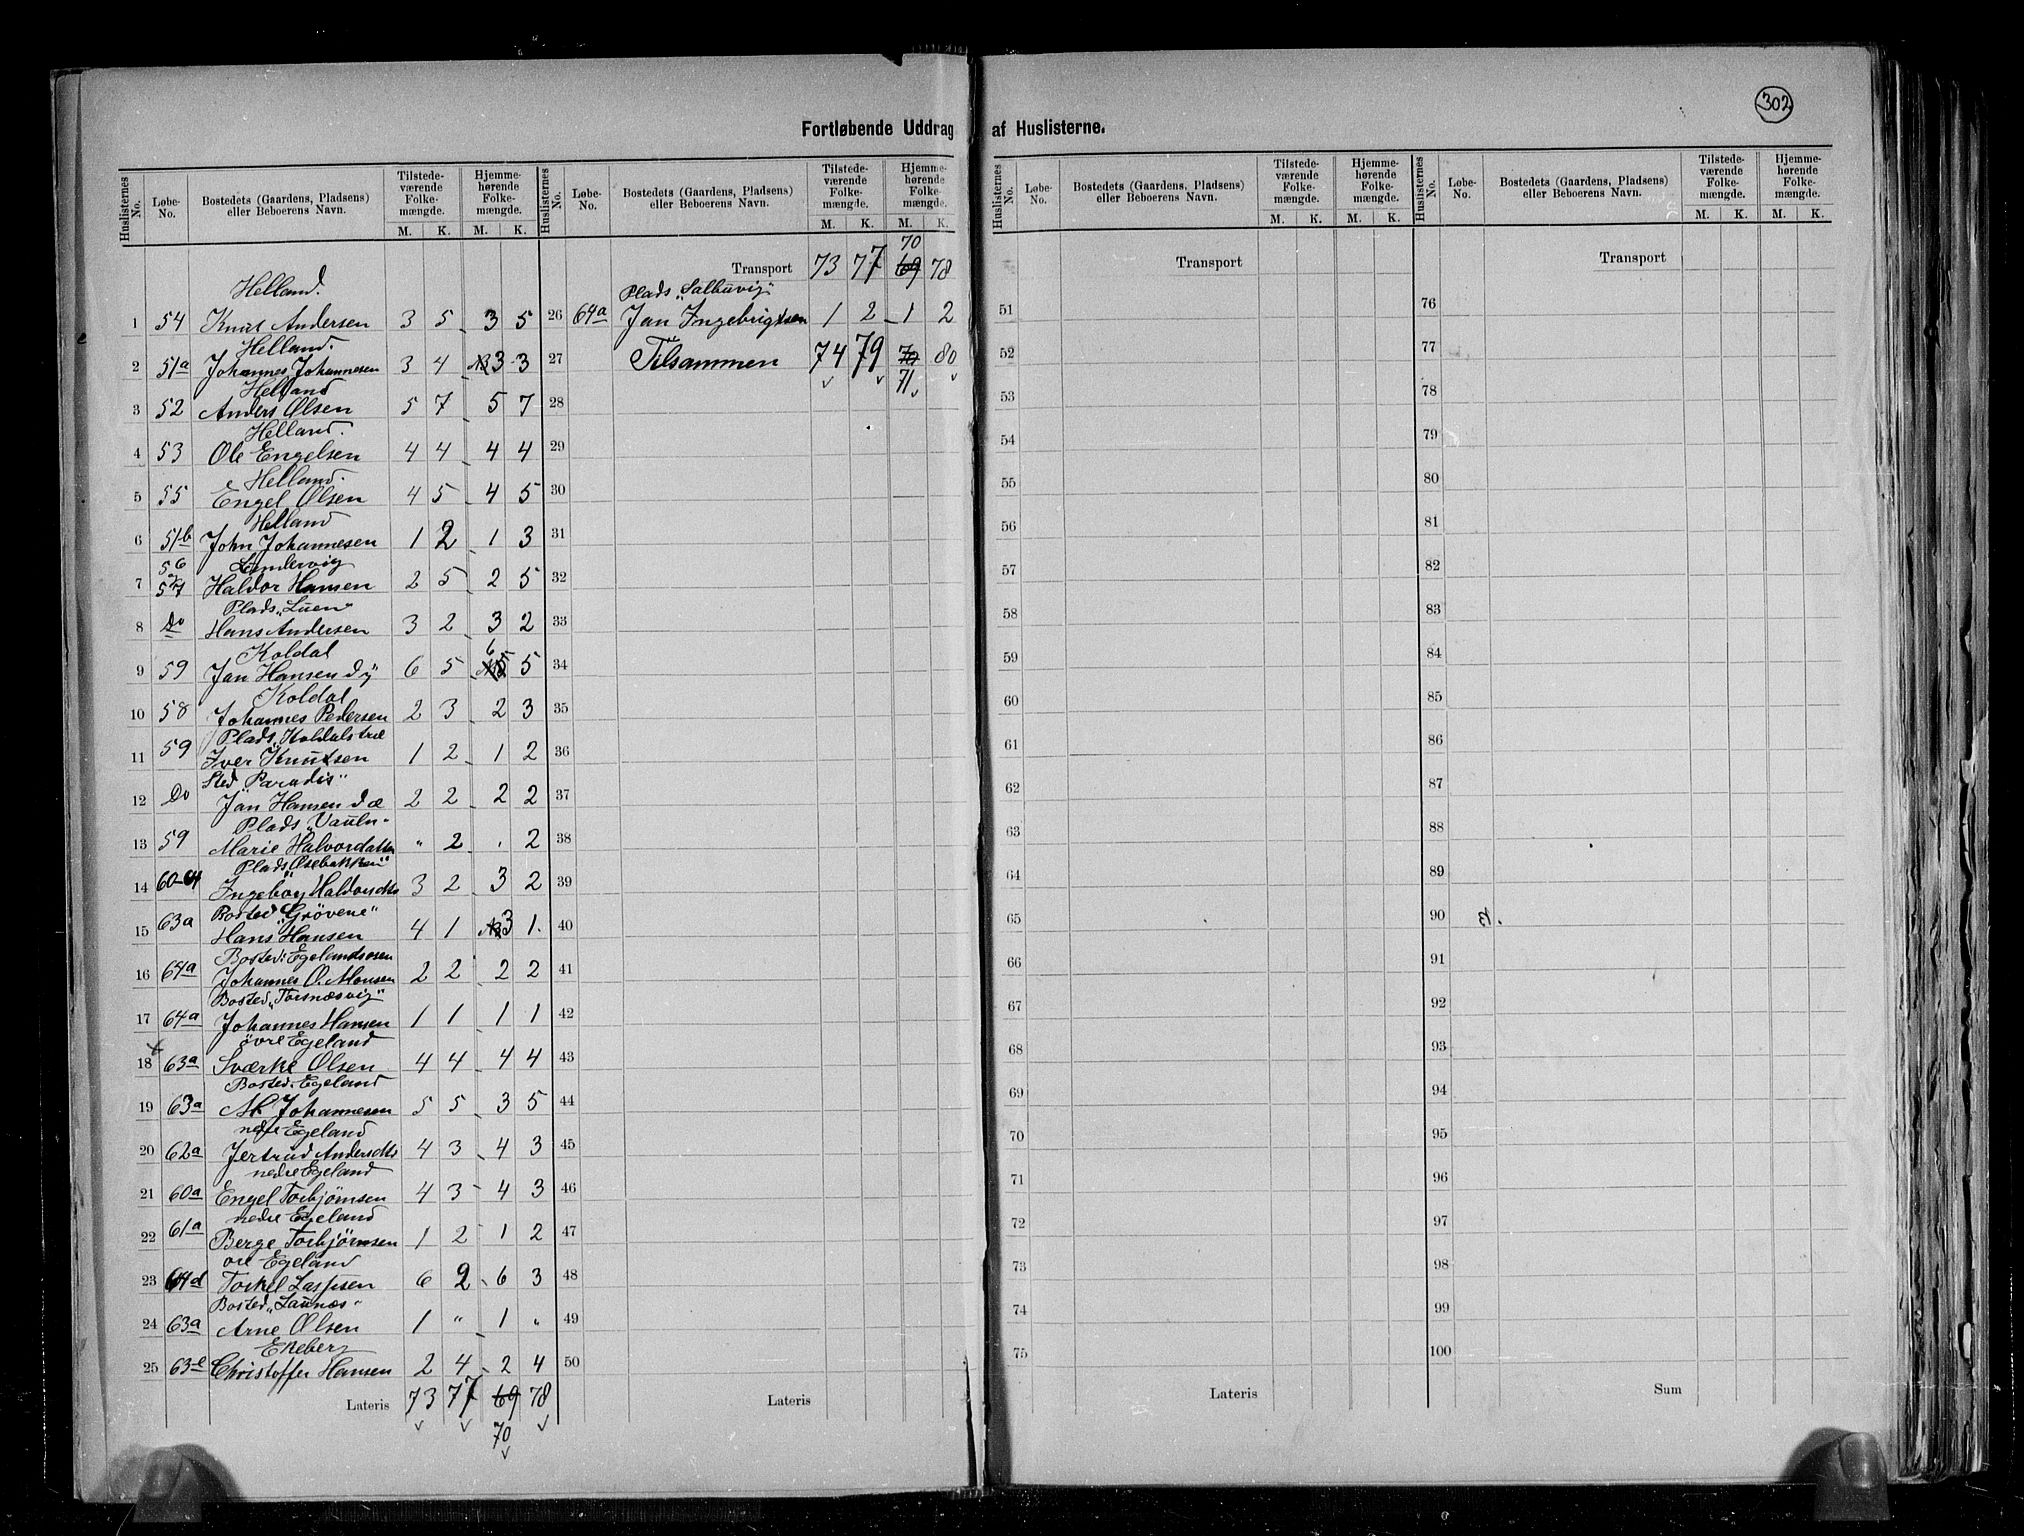 302
Fortløbende Uddrag af Huslisterne.
Huslisternes No. Løbe-No. Bostedets (Gaardens, Pladsens) eller Beboerens Navn. Tilstedeværende Folkemængde. M. K. Hjemmehørende Folkemængde. M. K.
Helland.
1 54 Knut Andersen 3 5 3 5
Helland.
2 51a Johannes Johannesen 3 4 3 3
Helland
3 52 Anders Olsen 5 7 5 7
Helland.
4 53 Ole Engelsen 4 4 4 4
Helland.
5 55 Engel Olsen 4 5 4 5
Helland
6 51b John Johannesen 1 2 1 3
56
7 57 Haldor Hansen 2 5 2 5
Plads „Luen"
8 Do Hans Andersen 3 2 3 2
Koldal
6
9 59 Jan Hansen d y 6 5 5 5
Koldal
10 58 Johannes Pedersen 2 3 2 3
Plads Koldalstræ
11 59 Iver Knutsen 1 2 1 2
Sted "Paradis"
12 Do Jan Hansen d æ 2 2 2 2
Plads „
13 59 Marie Halvordatter " 2 " 2
Plads Osebakken"
14 60-64 Ingeborg Haldorsdtr 3 2 3 2
Bosted "Grövene"
15 63a Hans Hansen 4 1 3 1.
Bosted: Egelandsosen
16 64a Johannes O. Monsen 2 2 2 2
Bosted „Torsnæsvig"
17 64a Johannes Hansen 1 1 1 1
övre Egeland
18 63a Sværke Olsen 4 4 4 4
Bosted: Egeland
19 63a M Johannesen 5 5 3 5
nedre Egeland
20 62a Jertrud Andersdtr 4 3 4 3
nedre Egeland
21 60a Engel Torbjörnsen 4 3 4 3
nedre Egeland
22 61a Berge Torbjörnsen 1 2 1 2
öve Egeland
23 64d Torkel Lassesen 6 2 6 3
Bosted „Saunæs"
24 63a Arne Olsen 1 " 1 "
Ekeberg
25 63e Christoffer Hansen 2 4 2 4
Lateris 73 77 69 78
70
Huslisternes No. Løbe-No. Bostedets (Gaardens, Pladsens) eller Beboerens Navn. Tilstedeværende Folkemængde. M. K. Hjemmehørende Folkemængde. M. K.
70
Transport 73 77 69 78
Plads „Salbuvig"
26 64a Jan Ingebrigtsen 1 2 1 2
27 Tilsammen 74 79 70 80
71
28
29
30
31
32
33
34
35
36
37
38
39
40
41
42
43
44
45
46
47
48
49
50
Lateris
Huslisternes No. Løbe-No. Bostedets (Gaardens, Pladsens) eller Beboerens Navn. Tilstedeværende Folkemængde. M. K. Hjemmehørende Folkemængde. M. K.
Transport
51
52
53
54
55
56
57
58
59
60
61
62
63
64
65
66
67
68
69
70
71
72
73
74
75
Lateris
Huslisternes No. Løbe-No. Bostedets (Gaardens, Pladsens) eller Beboerens Navn. Tilstedeværende Folkemængde. M. K. Hjemmehørende Folkemængde. M. K.
Transport
76
77
78
79
80
81
82
83
84
85
86
87
88
89
90
91
92
93
94
95
96
97
98
99
100
Sum